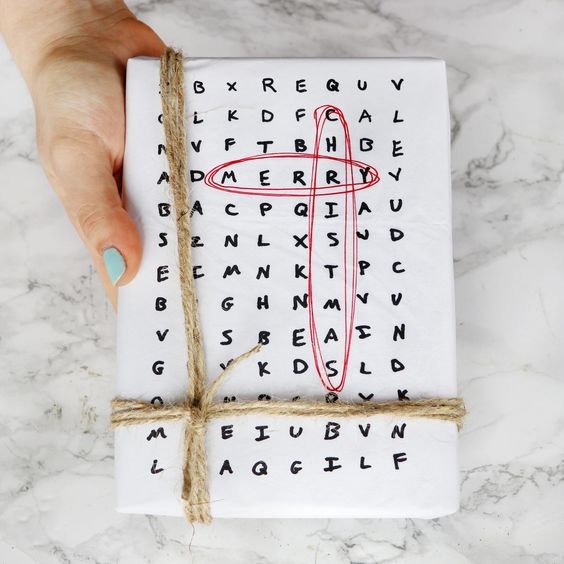 B X R E Q U V
L K D F C A L
N V F T B H B E
A D M E R R Y V
B A C P Q I A U
S Z N L X S U D
E I M N K T P C
B G H N M V U
V S B E A I N
G K D S L D
M E I U B V N
L A Q G I L F